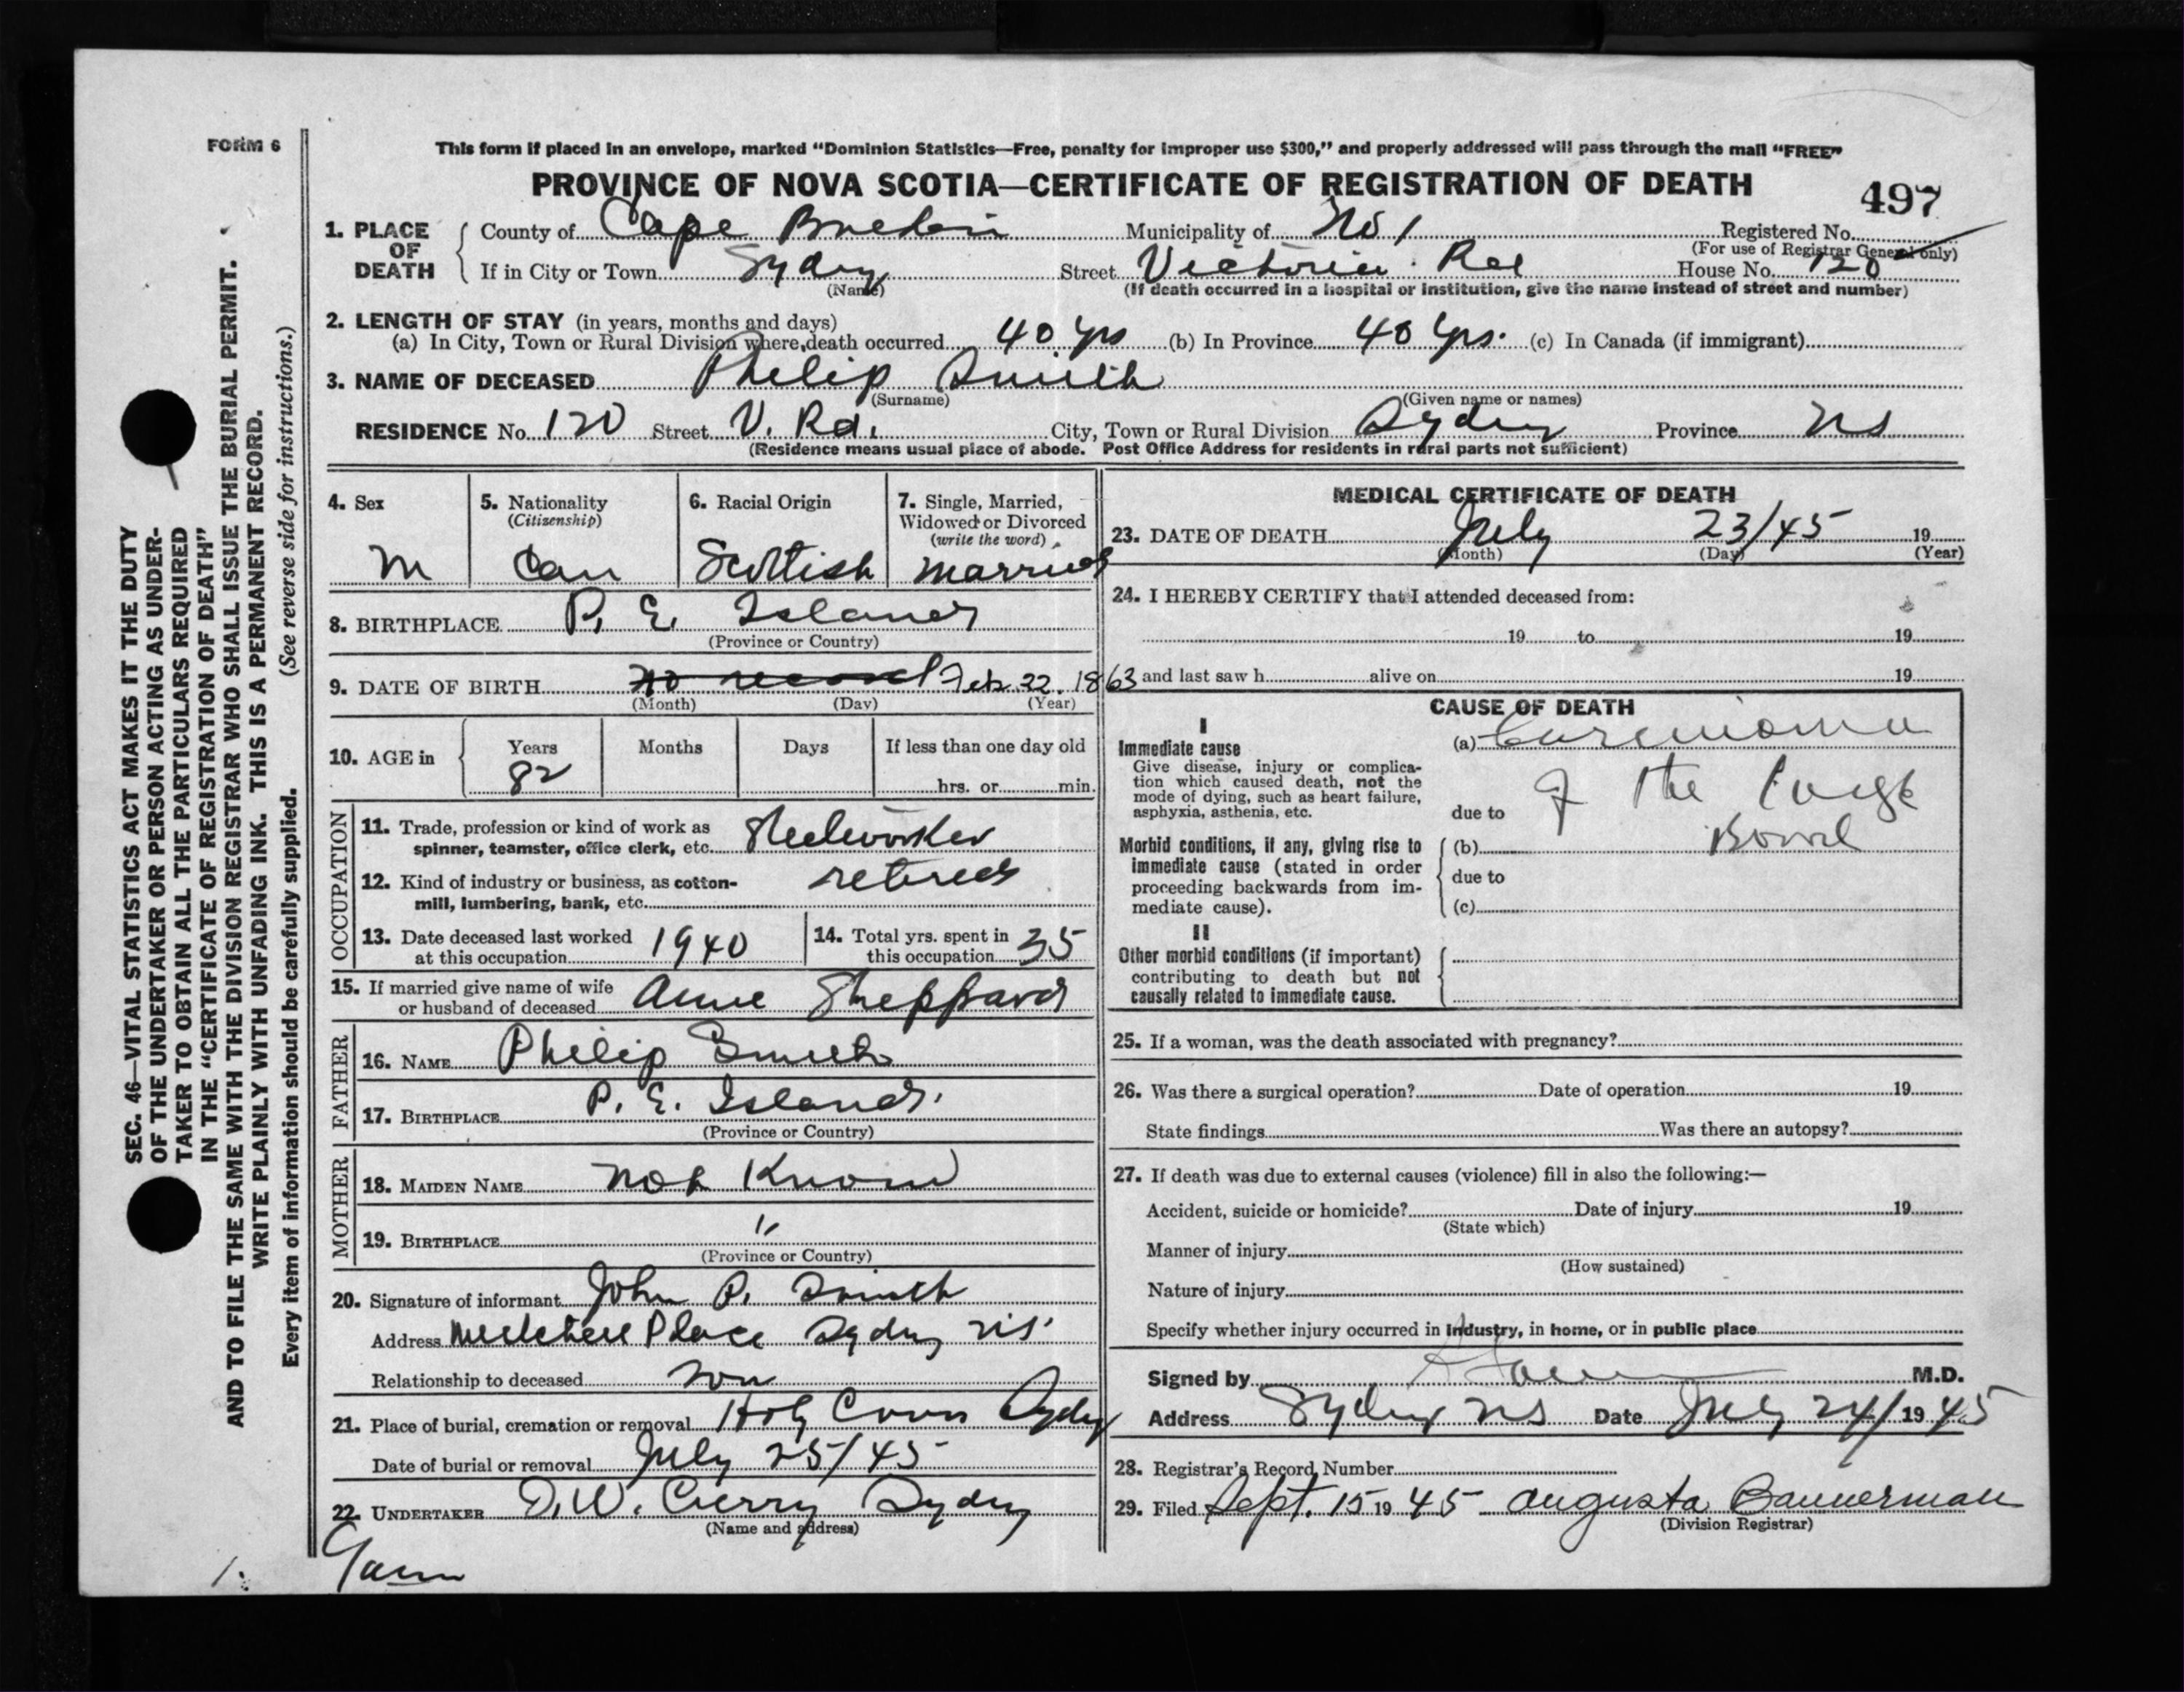 FORM 6
This form if placed in an envelope, marked “Dominion Statistics—Free, penalty for improper use $300,” and properly addressed will pass through the mail “FREE”
PROVINCE OF NOVA SCOTIA—CERTIFICATE OF REGISTRATION OF DEATH
497
1. PLACE OF DEATH
County of Cape Breton Municipality of No 1 Registered No.
(For use of Registrar General only)
If in City or Town Sydney Street Victoria Rd House No. 120
(Name) (If death occurred in a hospital or institution, give the name instead of street and number)
2. LENGTH OF STAY (in years, months and days)
(a) In City, Town or Rural Division where death occurred 40 yrs (b) In Province 40 yrs. (c) In Canada (if immigrant)
3. NAME OF DECEASED Philip Smith
(Surname) (Given name or names)
RESIDENCE No. 120 Street V. Rd. City, Town or Rural Division Sydney Province NS
(Residence means usual place of abode. Post Office Address for residents in rural parts not sufficient)
4. Sex
M
5. Nationality
(Citizenship)
Can
6. Racial Origin
Scottish
7. Single, Married,
Widowed or Divorced
(write the word)
married
8. BIRTHPLACE P. E. Island
(Province or Country)
9. DATE OF BIRTH no record Feb. 22. 1863
(Month) (Day) (Year)
10. AGE in
Years Months Days If less than one day old
82
hrs. or min.
OCCUPATION
11. Trade, profession or kind of work as
spinner, teamster, office clerk, etc. Steelworker
12. Kind of industry or business, as cotton- retired
mill, lumbering, bank, etc.
13. Date deceased last worked
at this occupation 1940
14. Total yrs. spent in
this occupation 35
15. If married give name of wife
or husband of deceased Anne Sheppard
FATHER
16. NAME Philip Smith
17. BIRTHPLACE P. E. Island.
(Province or Country)
MOTHER
18. MAIDEN NAME not Known
19. BIRTHPLACE "
(Province or Country)
20. Signature of informant John P. Smith
Address Mitchell Place Sydney NS.
Relationship to deceased son
21. Place of burial, cremation or removal Holy Cross Sydney
Date of burial or removal July 25/45
22. UNDERTAKER D.W. Curry Sydney
(Name and address)
MEDICAL CERTIFICATE OF DEATH
23. DATE OF DEATH July 23/45 19
(Month) (Day) (Year)
24. I HEREBY CERTIFY that I attended deceased from:
19 to 19
and last saw h alive on 19
CAUSE OF DEATH
I
Immediate cause
Give disease, injury or complica-
tion which caused death, not the
mode of dying, such as heart failure,
asphyxia, asthenia, etc.
(a) Carcinoma
due to of the large
Morbid conditions, if any, giving rise to
immediate cause (stated in order
proceeding backwards from im-
mediate cause).
(b) Bowel
due to
(c)
II
Other morbid conditions (if important)
contributing to death but not
causally related to immediate cause.
25. If a woman, was the death associated with pregnancy?
26. Was there a surgical operation? Date of operation 19
State findings Was there an autopsy?
27. If death was due to external causes (violence) fill in also the following:—
Accident, suicide or homicide? Date of injury 19
(State which)
Manner of injury
(How sustained)
Nature of injury
Specify whether injury occurred in industry, in home, or in public place
Signed by M.D.
Address Sydney NS Date July 24/ 19 45
28. Registrar's Record Number
29. Filed Sept. 15 19 45 Augusta Bannerman
(Division Registrar)
SEC. 46—VITAL STATISTICS ACT MAKES IT THE DUTY
OF THE UNDERTAKER OR PERSON ACTING AS UNDER-
TAKER TO OBTAIN ALL THE PARTICULARS REQUIRED
IN THE “CERTIFICATE OF REGISTRATION OF DEATH”
AND TO FILE THE SAME WITH THE DIVISION REGISTRAR WHO SHALL ISSUE THE BURIAL PERMIT.
WRITE PLAINLY WITH UNFADING INK. THIS IS A PERMANENT RECORD.
Every item of information should be carefully supplied. (See reverse side for instructions.)